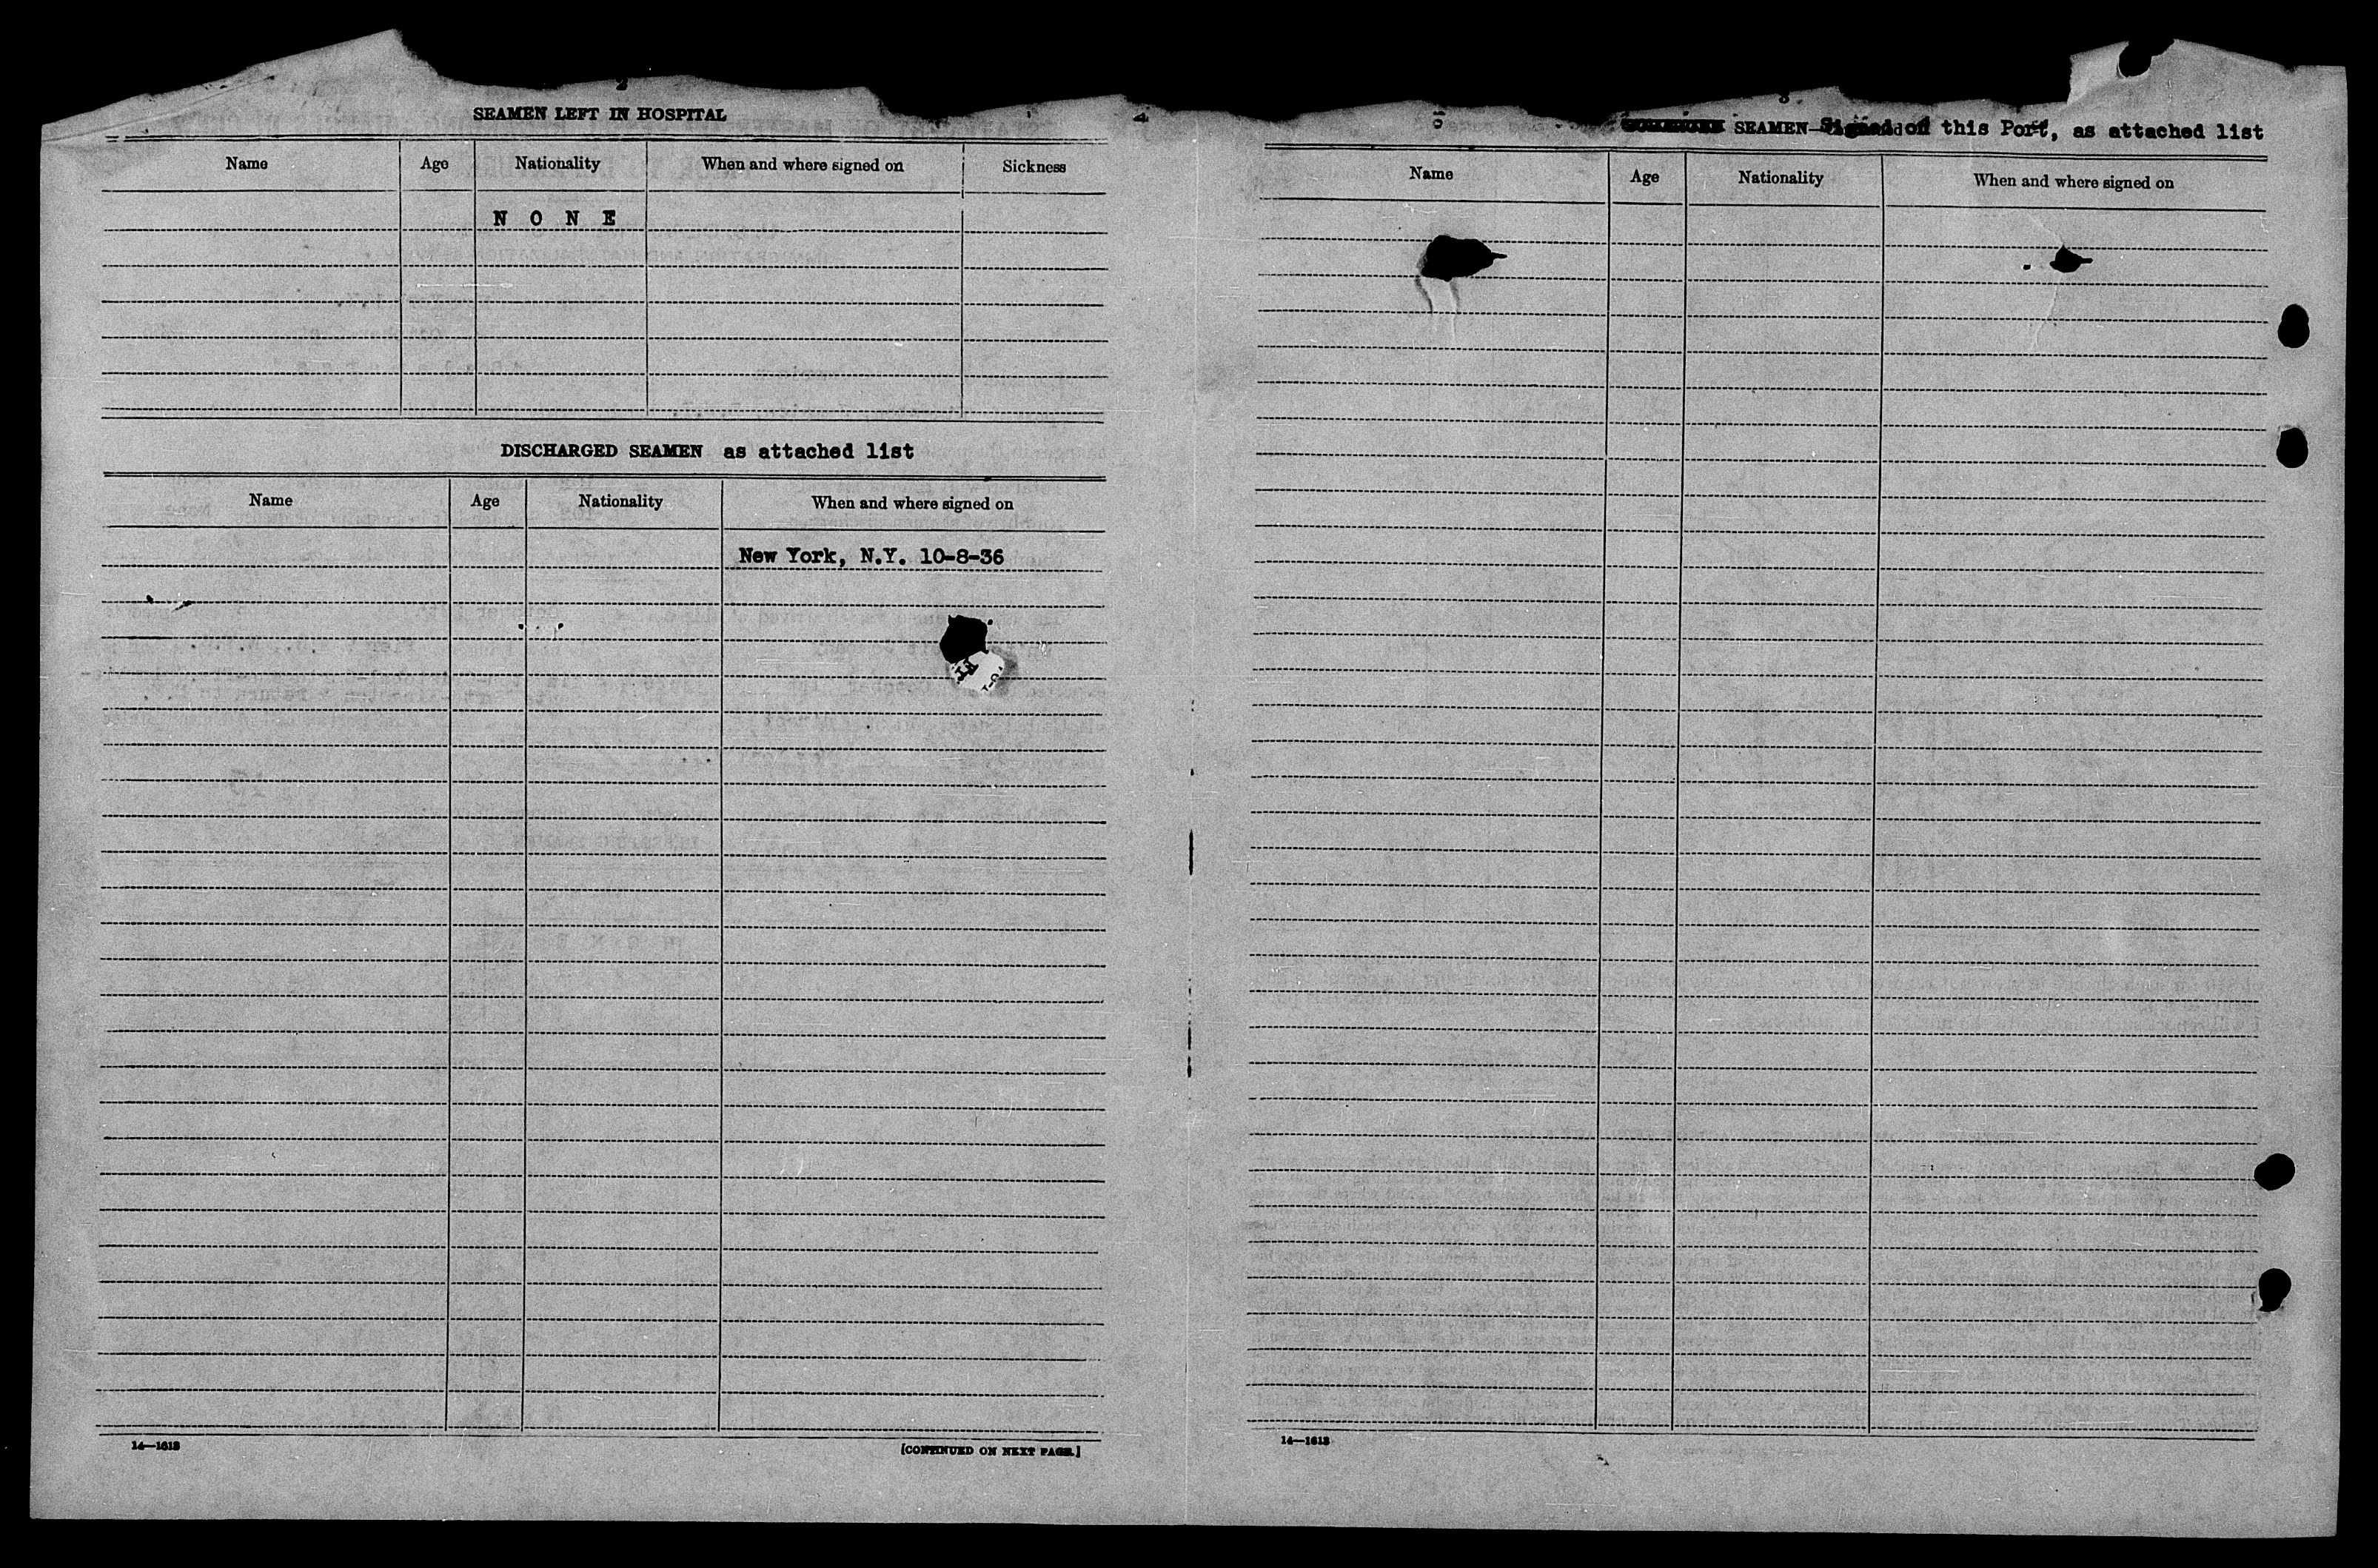 2
SEAMEN LEFT IN HOSPITAL
Name Age Nationality When and where signed on Sickness
N O N E
DISCHARGED SEAMEN as attached list
Name Age Nationality When and where signed on
New York, N.Y. 10-8-36
14—1613
[CONTINUED ON NEXT PAGE.]
3
SEAMEN—Signed on this Port, as attached list
Name Age Nationality When and where signed on
14—1613